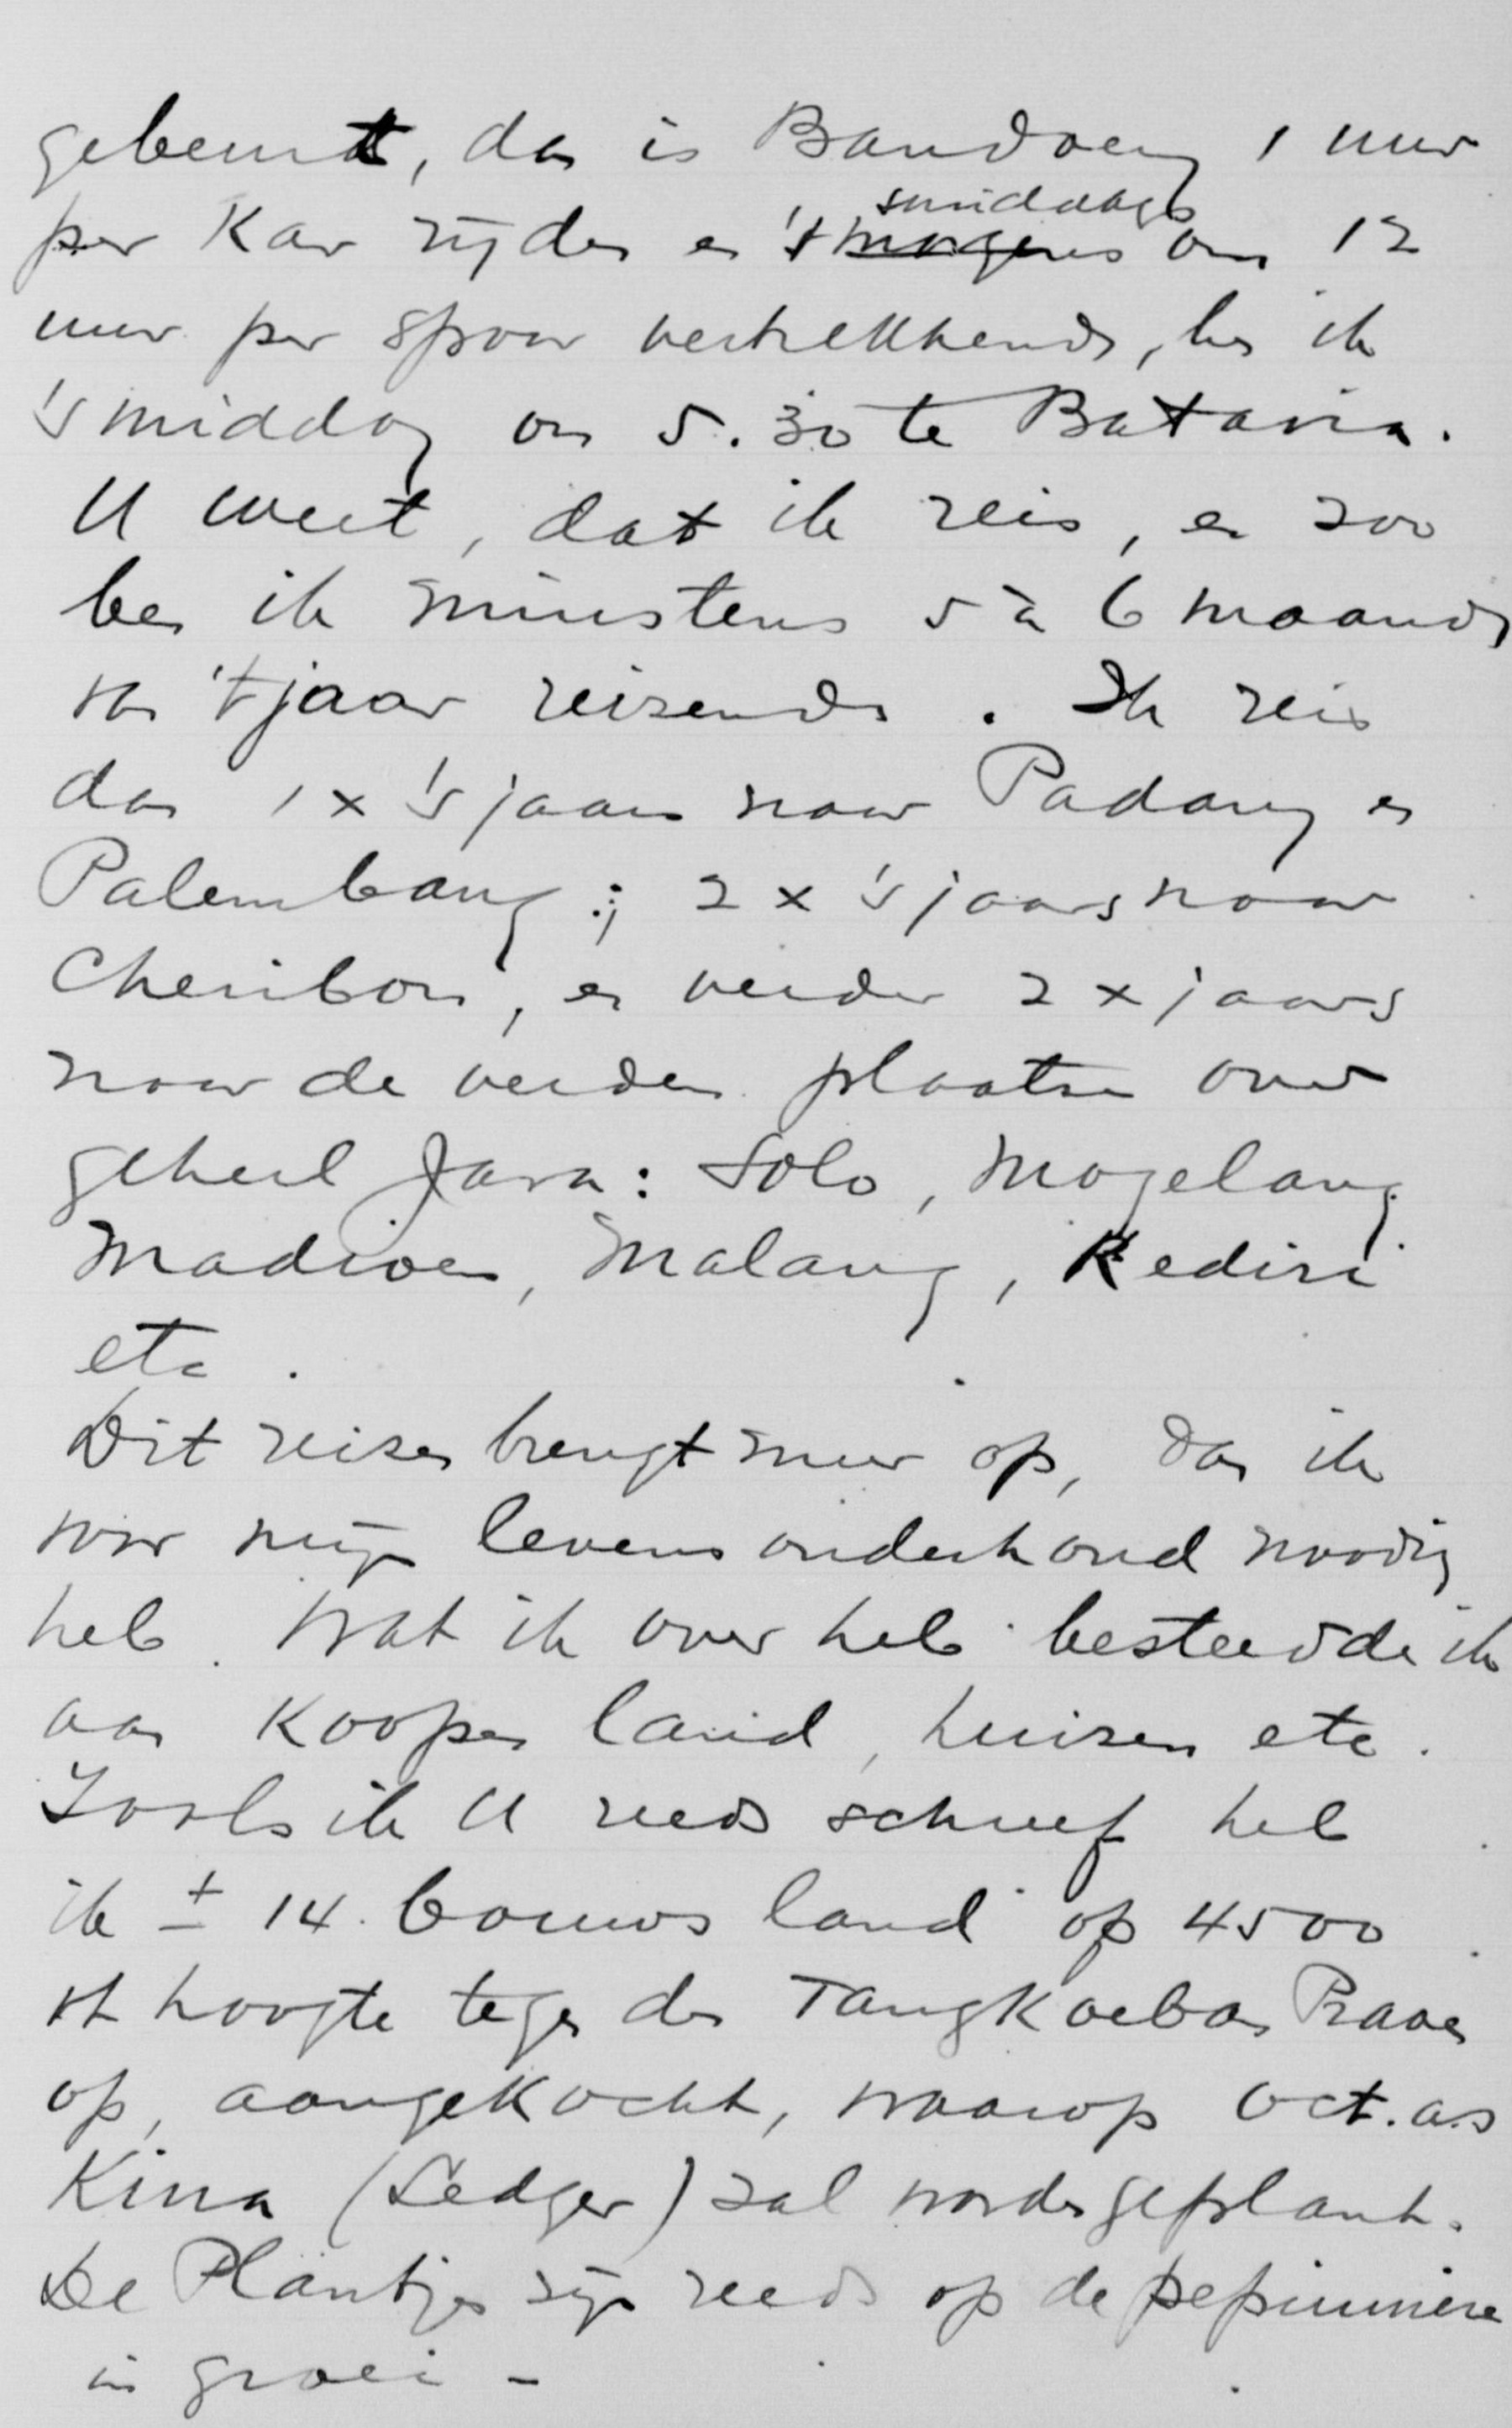 gebeurt, dan is Bandoeng 1 uur
per Kar rijden en 's morgens smiddags om 12
uur per spoor vertrekkende, ben ik
's middag om 5.30 te Batavia.
U weet, dat ik reis, en zoo
ben ik minstens 5 à 6 maanden
van 't jaar reizende. Ik reis
dan 1 x 's jaars naar Padang en
Palembang; 2 x 's jaars naar
Cheribon, en verder 2 x jaars
naar de verdere plaatsen over
geheel Java: Solo, Magelang
Madioen, Malang, Kediri
etc.
Dit reizen brengt meer op, dan ik
voor mijn levensonderhoud noodig
heb. Wat ik over heb besteedde ik
aan Koopen land, huizen etc.
Zooals ik U reeds schreef heb
ik ± 14 bouws land op 4500
vt hoogte tegen den Tangkoeban Praoe
op, aangekocht, waarop Oct. a.s
Kina (Ledger) zal worden geplant.
De Plantjes zijn reeds op de pepinnière
in groei -